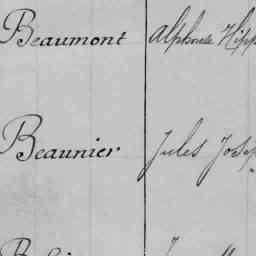 Beaumont Alphonse Hipp
Beaunier Jules Josep